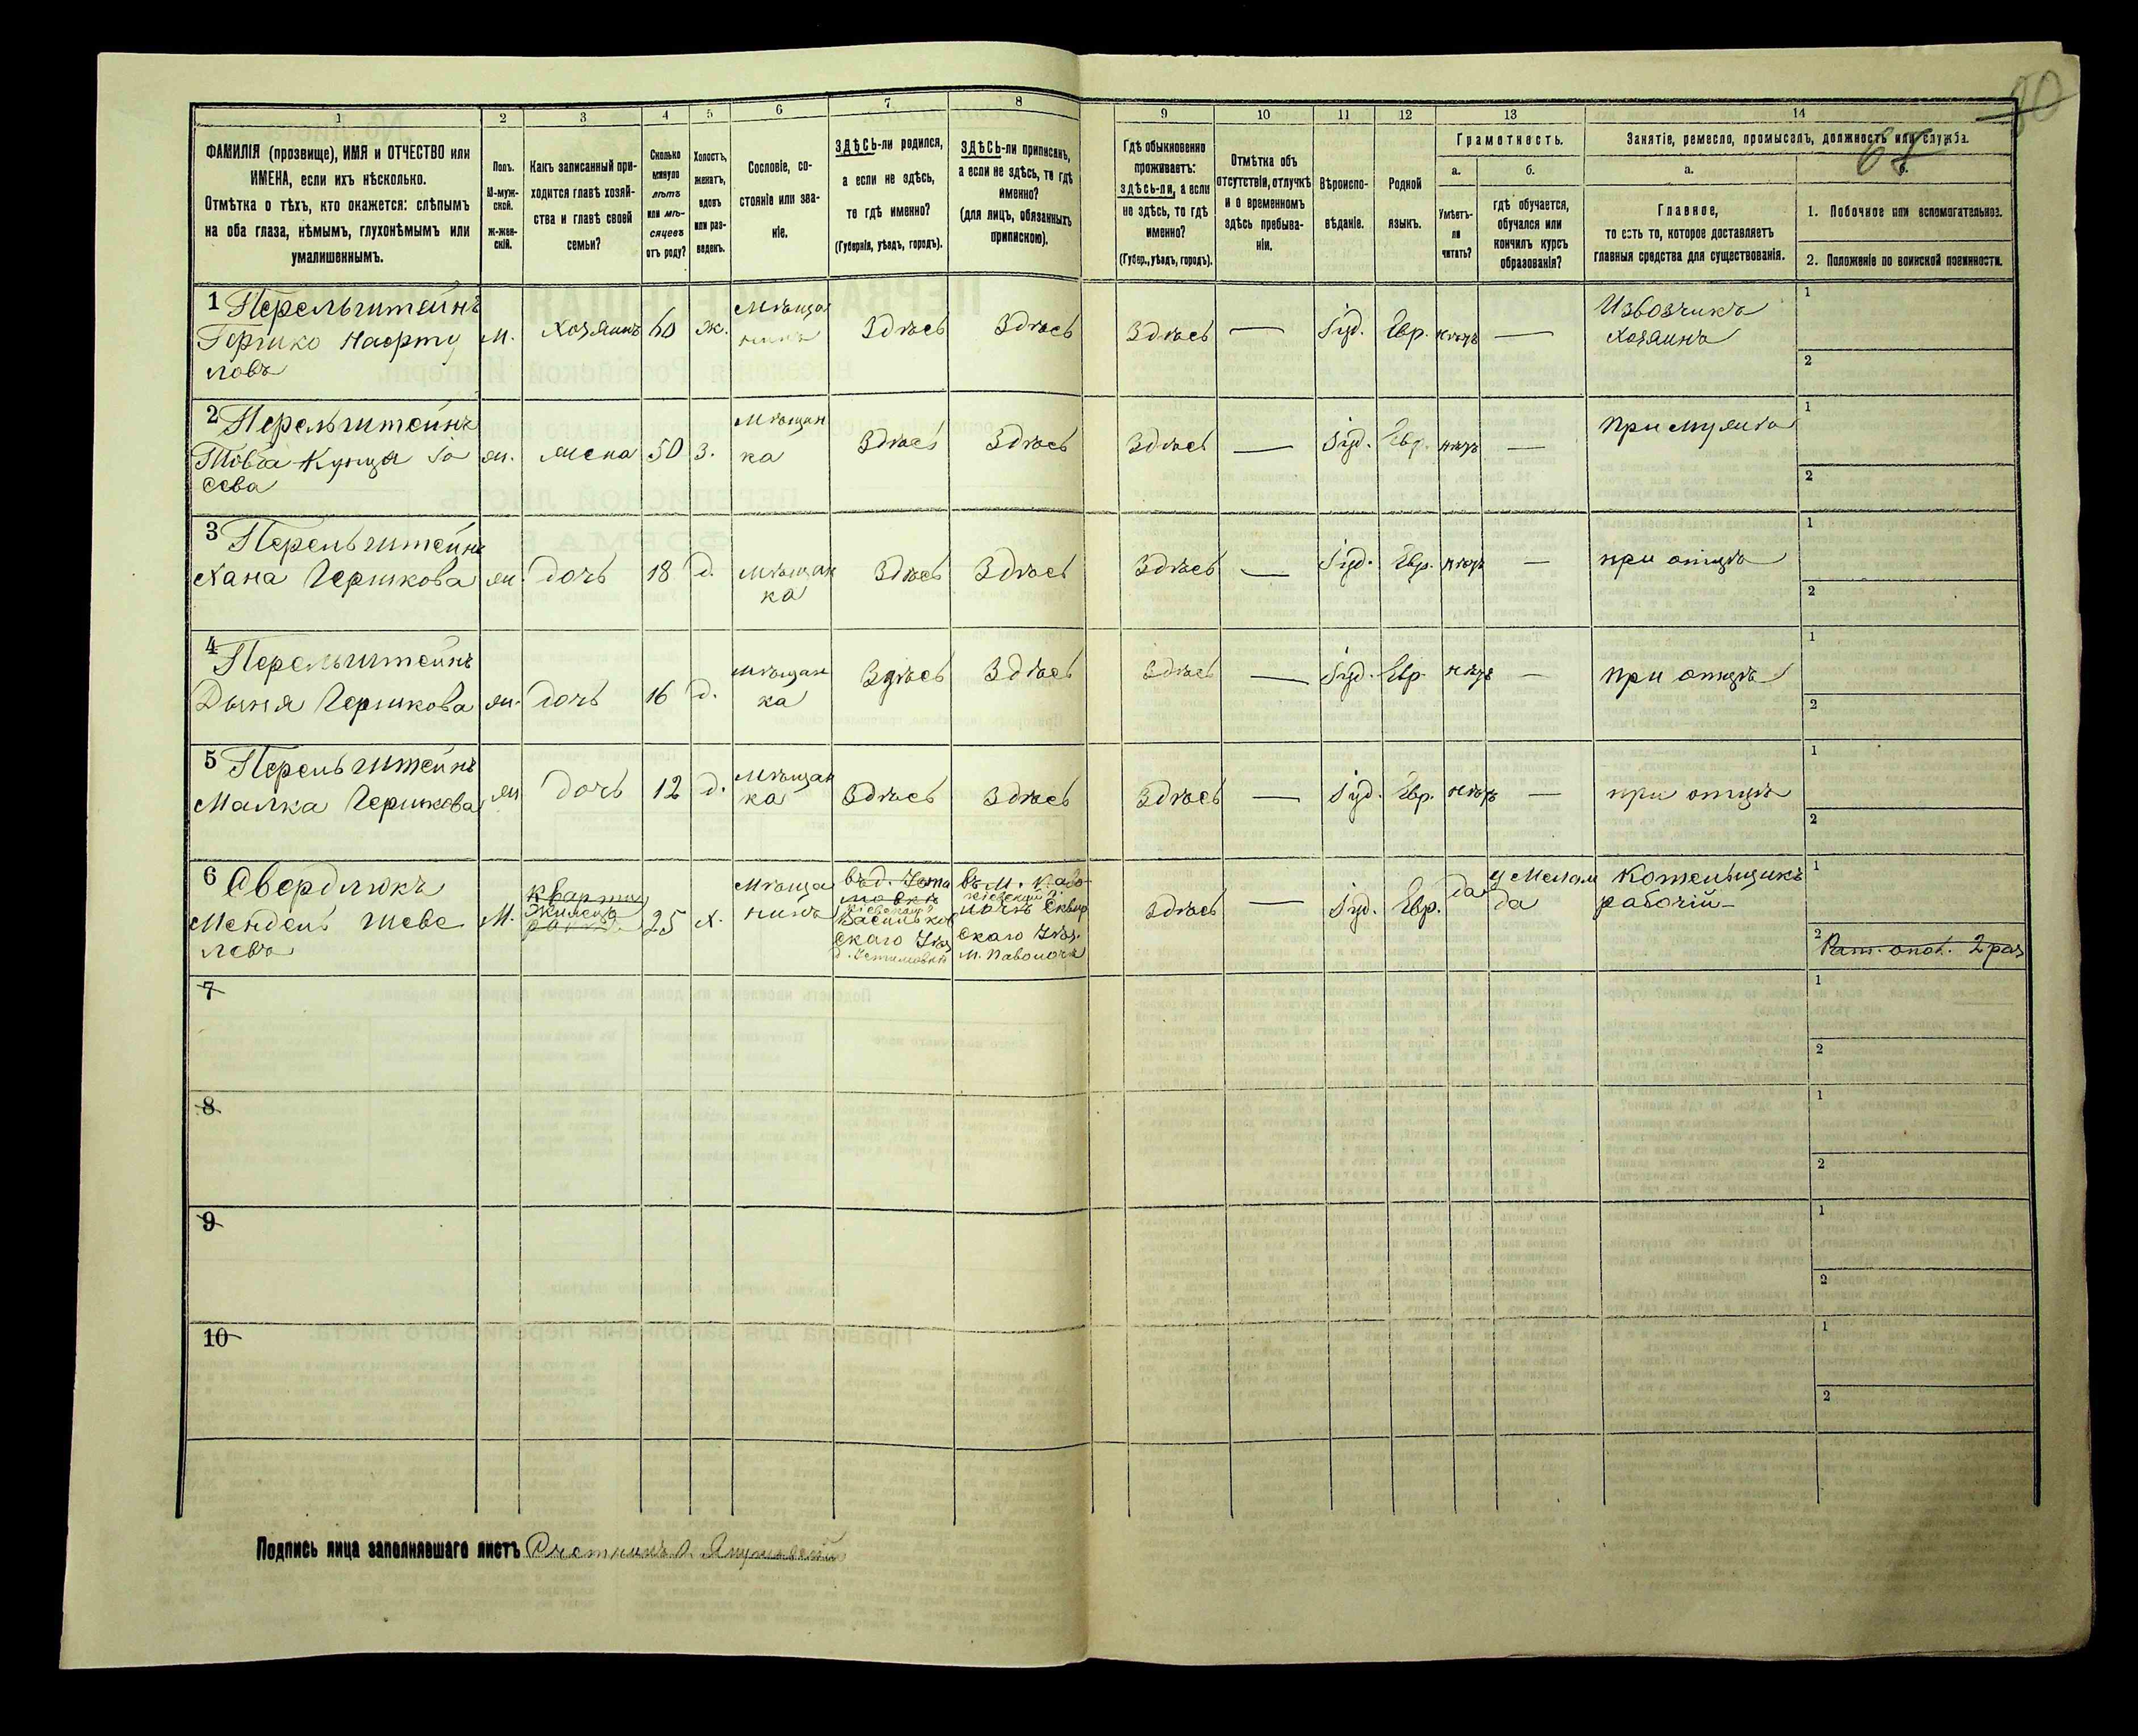 80
68
1 2 3 4 5 6 7 8 9 10 11 12 13 14
ФАМИЛІЯ (прозвище), ИМЯ и ОТЧЕСТВО или ИМЕНА, если ихъ нѣсколько.
Отмѣтка о тѣхъ, кто окажется: слѣпымъ на оба глаза, нѣмымъ, глухонѣмымъ или умалишеннымъ.
Полъ.
М-муж-
ской.
Ж-жен-
скій.
Какъ записанный при-
ходится главѣ хозяй-
ства и главѣ своей
семьи?
Сколько
минуло
лѣтъ
или мѣ-
сяцевъ
отъ роду?
Холостъ,
женатъ,
вдовъ
или раз-
веденъ.
Сословіе, со-
стояніе или зва-
ніе.
ЗДѢСЬ-ли родился,
а если не здѣсь,
то гдѣ именно?
(Губернія, уѣздъ, городъ).
ЗДѢСЬ-ли приписанъ,
а если не здѣсь, то гдѣ
именно?
(для лицъ, обязанныхъ
припискою).
Гдѣ обыкновенно
проживаетъ:
здѣсь-ли, а если
не здѣсь, то гдѣ
именно?
(Губер., уѣздъ, городъ).
Отмѣтка объ
отсутствіи, отлучкѣ
и о временномъ
здѣсь пребыва-
ніи.
Вѣроиспо-
вѣданіе.
Родной
языкъ.
Грамотность.
а.
Умѣетъ-
ли
читать?
б.
гдѣ обучается,
обучался или
кончилъ курсъ
образованія?
Занятіе, ремесло, промыселъ, должность или служба.
а.
Главное,
то есть то, которое доставляетъ
главныя средства для существованія.
1. Побочное или вспомогательное.
2. Положеніе по воинской повинности.
1 Перельштейнъ
Гершко Нафту
ловъ
М. Хозяинъ 60 ж. Мѣща
нинъ
Здѣсь Здѣсь Здѣсь — Іуд. Евр. нѣтъ —
Извозчикъ
Хозяинъ
1
2
2 Перельштейнъ
ж. жена 50 з. Мѣщан
ка
Здѣсь Здѣсь Здѣсь — Іуд. Евр. нѣтъ — При мужѣ
1
2
3 Перельштейнъ
Хана Гершкова ж. дочь 18 д. Мѣщан
ка
Здѣсь Здѣсь Здѣсь — Іуд. Евр. нѣтъ — при отцѣ
1
2
4 Перельштейнъ
Дыня Гершкова ж. дочь 16 д. мѣщан
ка
Здѣсь Здѣсь Здѣсь — Іуд. Евр. нѣтъ — при отцѣ
1
2
5 Перельштейнъ
Малка Гершкова ж дочь 12 д. Мѣщан
ка
Здѣсь Здѣсь Здѣсь — Іуд. Евр. нѣтъ — при отцѣ
1
2
6 Свердликъ
Мендель Шеве
левъ
М.
кварти
жилецъ
25 х. Мѣща
нинъ
въ д. Усти
мовкѣ
Кіевской
Васильков
скаго Уѣз
д. Устимовкѣ
въ м. Паво
Кіевской
лочѣ Сквир
скаго Уѣз.
м. Паволочѣ
Здѣсь — Іуд. Евр. да
у Мелам
да
Котельщикъ
рабочій
1
2
Рат. опол. 2 раз
7 1 2
8 1 2
9 1 2
10 1 2
Подпись лица заполнявшаго листъ Счетчикъ